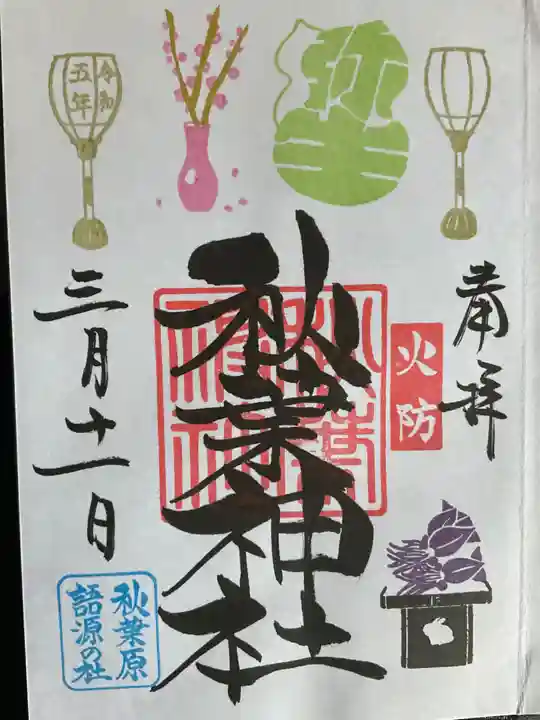 奉拝
火防
秋葉神社
弥生
令和
五年
三月十一日
秋葉原
語源の社